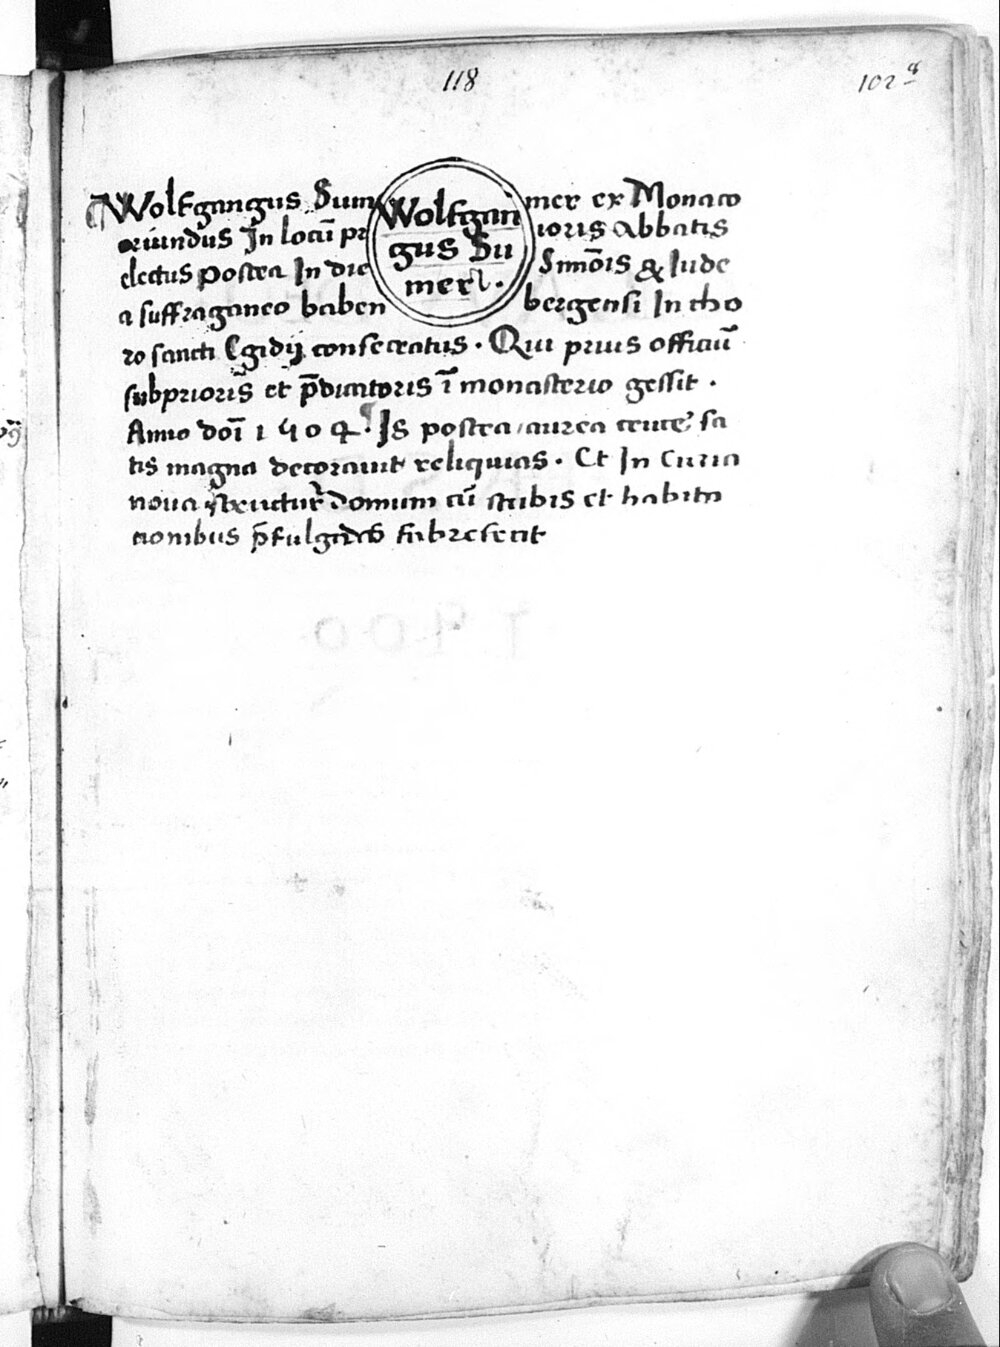 118
102 8
Wolfgangus Sum mer ex Monaco
oriundus In locū pr ioris abbatis
electus postea In die Simōis & Iude
a suffraganeo baben bergensi In cho
ro sancti Egidij consecratus · Qui prius officiū
subprioris et p̄dicatoris ī monasterio gessit ·
Anno doī 1504 · Is postea aurea cruce sa
tis magna decorauit reliquias · Et In Curia
noua structur domum cū stubis et habita
cionibus p̄fulgidā fabrefecit
Wolfgan
gus Su
mer ·